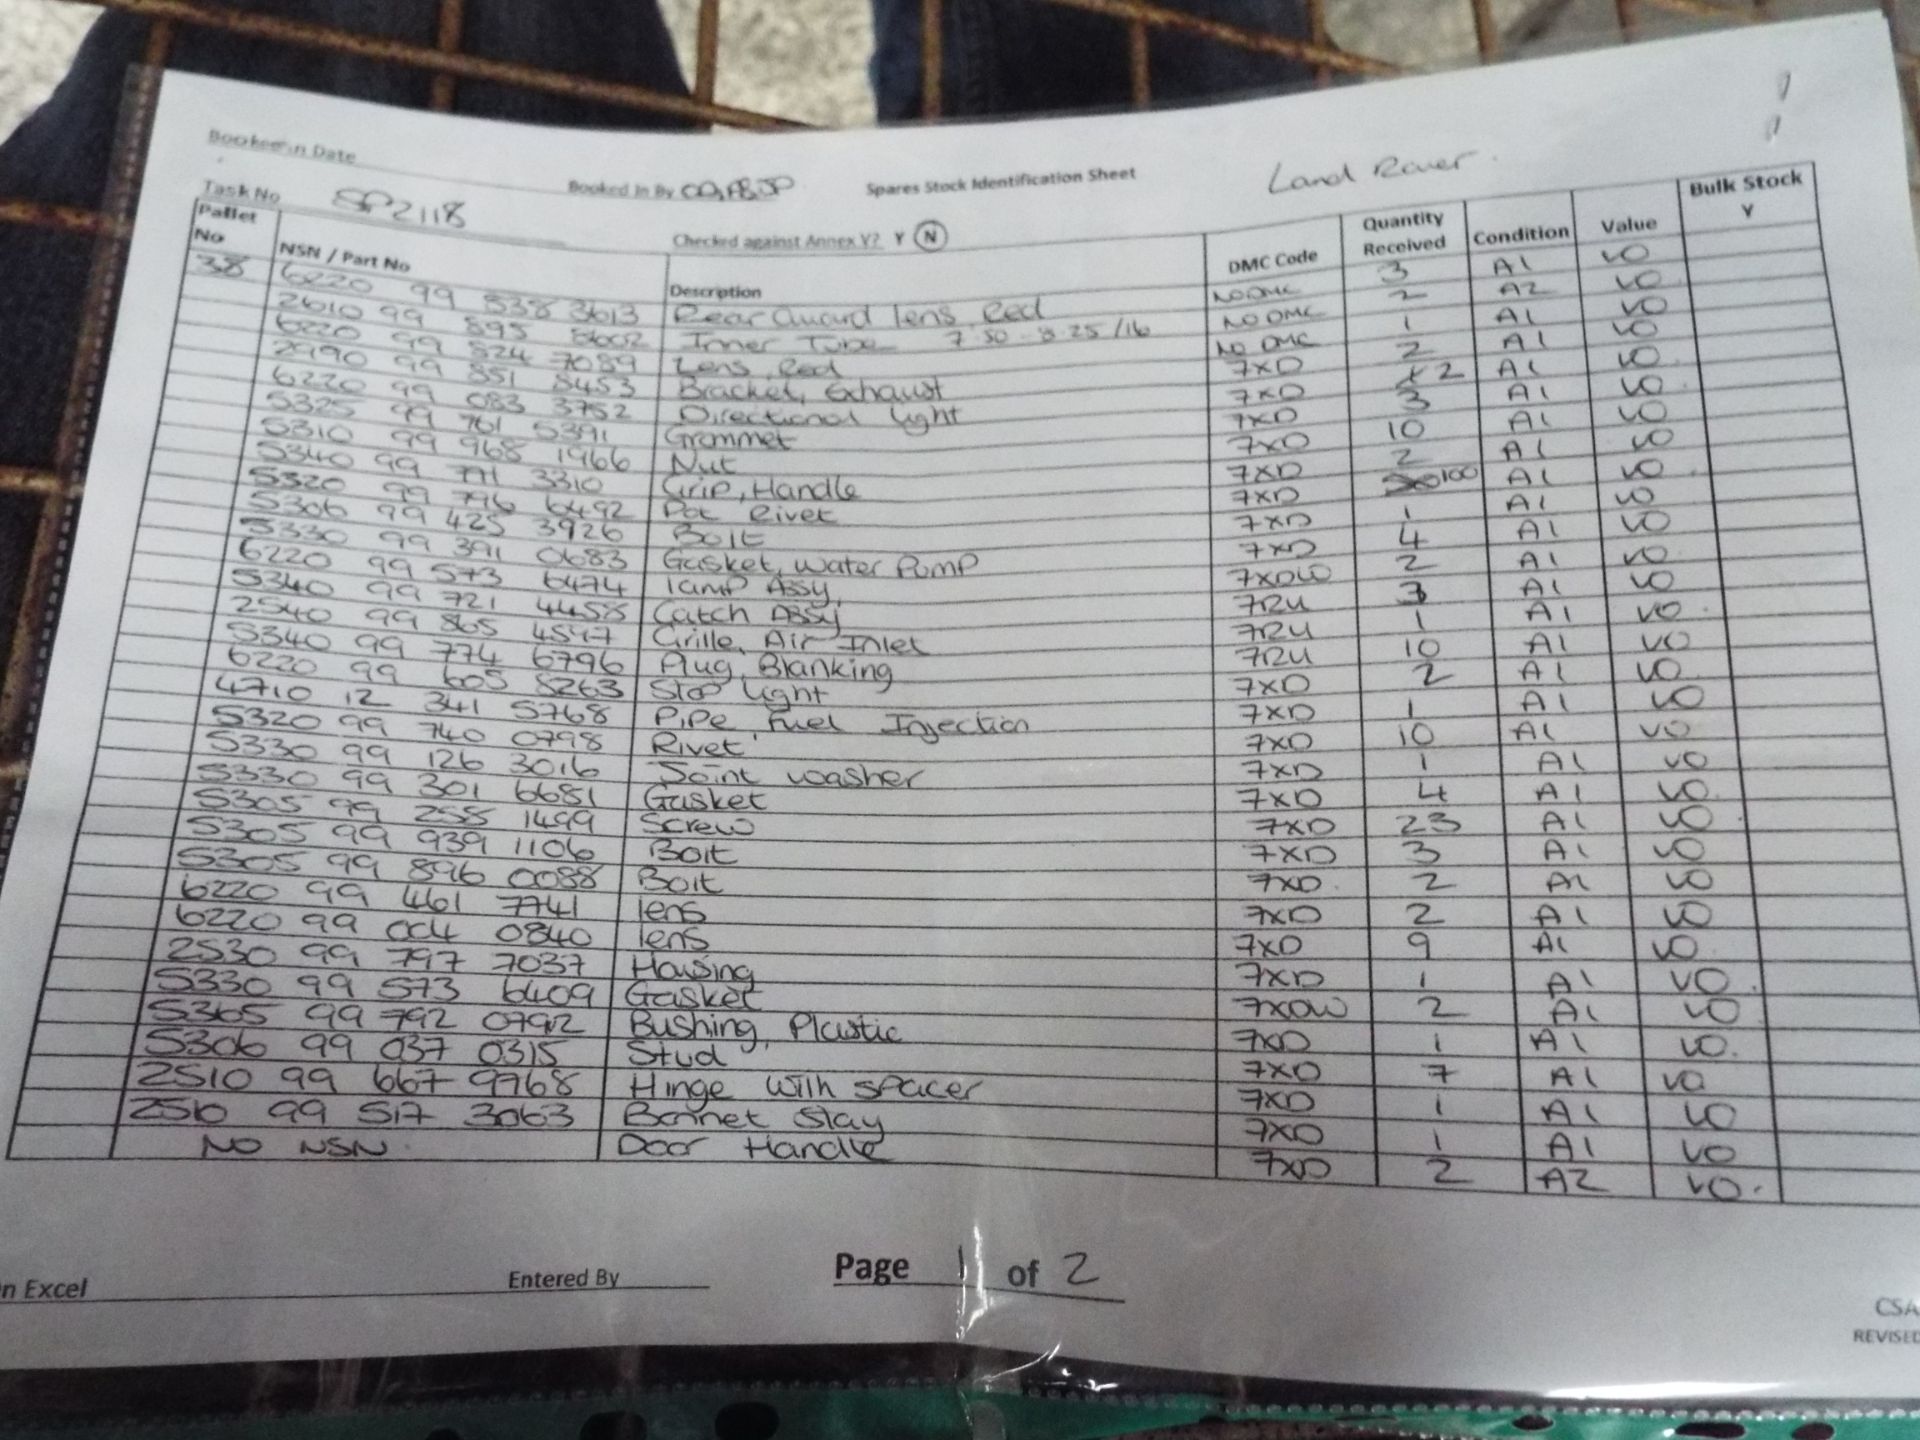 Booked in Date
Booked In By
Spares Stock Identification Sheet
Land Rover
Task No SP2118
Checked against Annex Y? Y N
Pallet No NSN / Part No Description DMC Code Quantity Received Condition Value Bulk Stock Y
38 6220 99 538 3613 Rear Guard lens Red NO DMC 3 A1 VO
2610 99 895 Inner Tube 7.50 - 8.25 /16 NO DMC 2 A2 VO
6220 99 524 7089 Lens, Red NO DMC 1 A1 VO
2990 99 851 8453 Bracket, Exhaust 7XD 2 A1 VO
6220 99 083 3752 Directional light 7XD 2 A1 VO
5325 99 761 5391 Grommet 7XD 3 A1 VO
5310 99 968 1966 Nut 7XD 10 A1 VO
5340 99 771 3310 Grip, Handle 7XD 2 A1 VO
5320 99 796 6492 Pot Rivet 7XD 100 A1 VO
5306 99 425 3926 Bolt 7XD 1 A1 VO
5330 99 391 0683 Gasket, Water Pump 7XD 4 A1 VO
6220 99 573 6474 lamp Assy, 7XDW 2 A1 VO
5340 99 721 4458 Catch Assy 7RU 3 A1 VO
2540 99 865 4547 Grille, Air Inlet 7RU 1 A1 VO
5340 99 774 6796 Plug, Blanking 7RU 10 A1 VO
6220 99 605 8263 Stop light 7XD 2 A1 VO
4710 12 341 5768 Pipe, Fuel Injection 7XD 1 A1 VO
5320 99 740 0798 Rivet 7XD 10 A1 VO
5330 99 126 3016 Joint washer 7XD 1 A1 VO
5330 99 301 6681 Gasket 7XD 4 A1 VO
5305 99 258 1499 Screw 7XD 23 A1 VO
5305 99 939 1106 Bolt 7XD 3 A1 VO
5305 99 896 0088 Bolt 7XD 2 A1 VO
6220 99 461 7741 lens 7XD 2 A1 VO
6220 99 004 0840 lens 7XD 9 A1 VO
2530 99 797 7037 Housing 7XD 1 A1 VO
5330 99 573 6409 Gasket 7XDW 2 A1 VO
5365 99 792 0792 Bushing, Plastic 7XD 1 A1 VO
5306 99 037 0315 Stud 7XD 7 A1 VO
2510 99 667 9768 Hinge with spacer 7XD 1 A1 VO
2510 99 517 3063 Bonnet Stay 7XD 1 A1 VO
NO NSN Door Handle 7XD 2 A2 VO
n Excel
Entered By
Page 1 of 2
CSA
REVISED